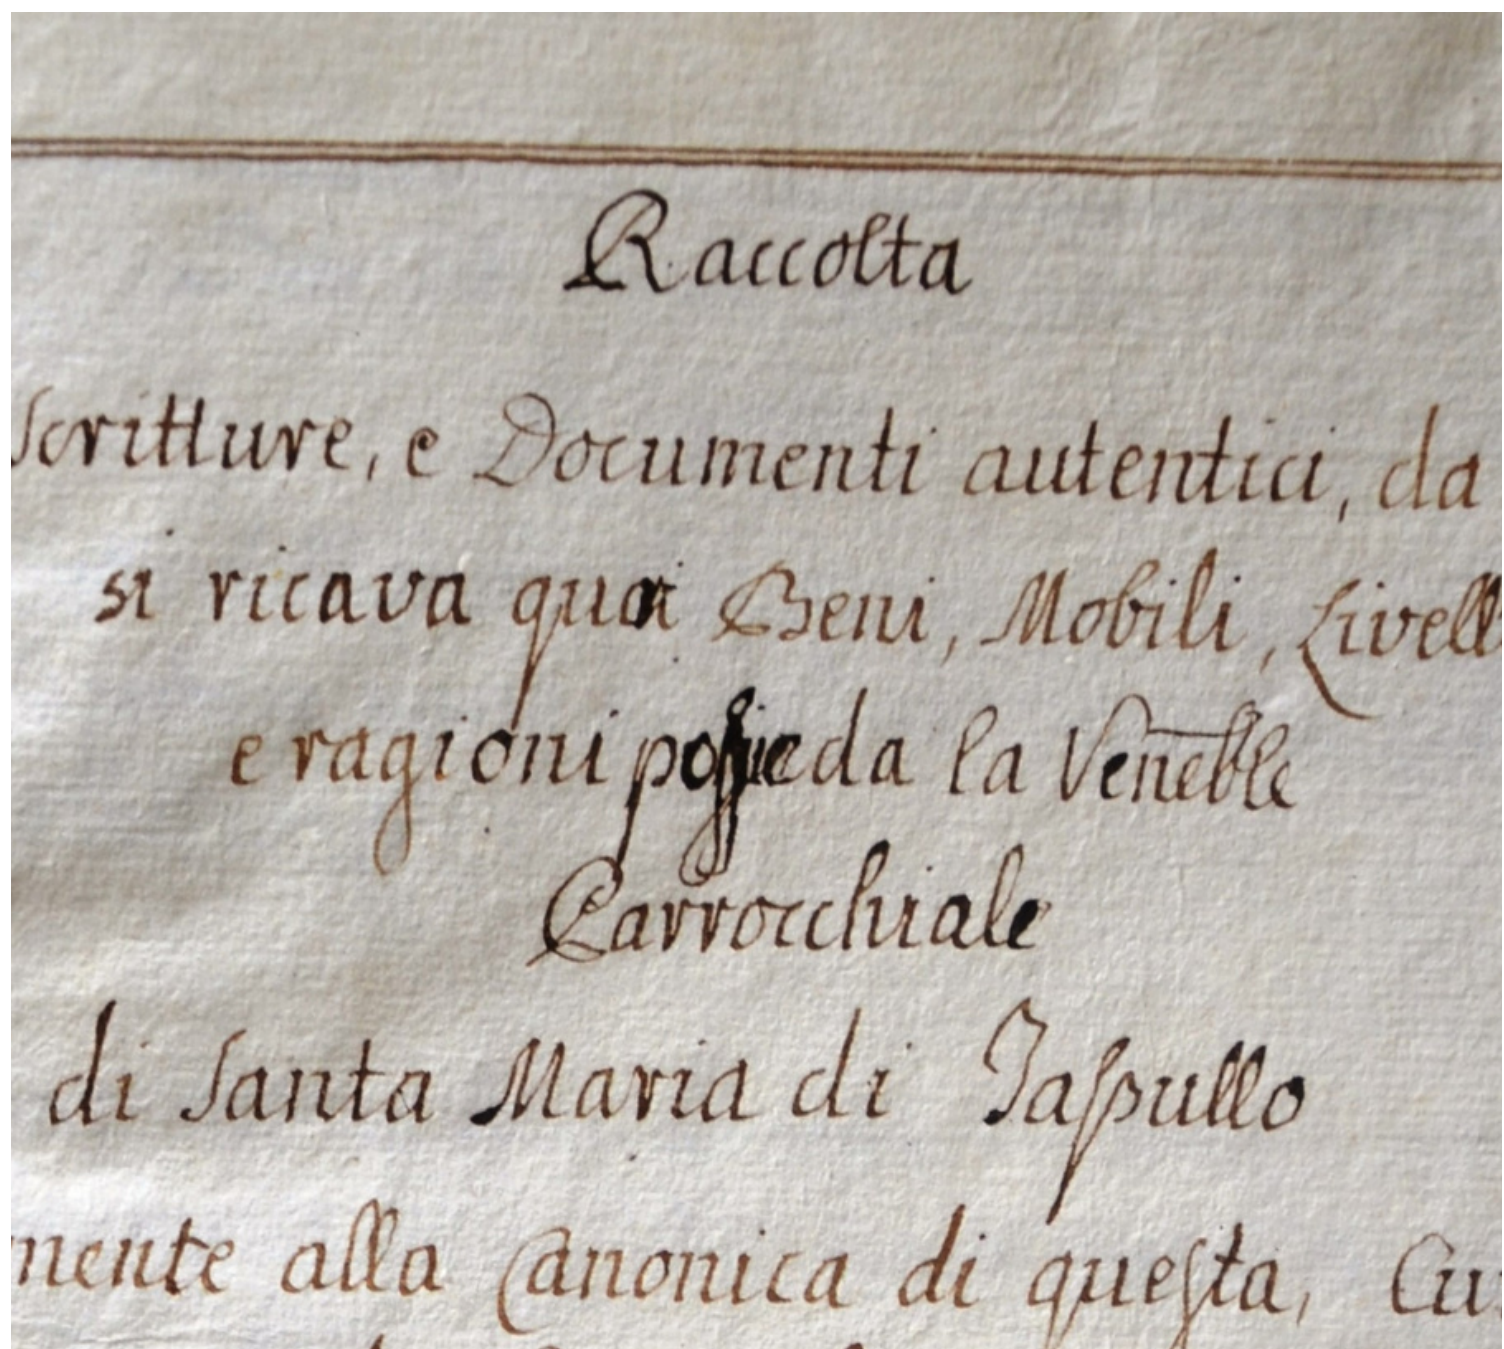 Raccolta
Scritture, e Documenti autentici, da
si ricava quai Beni, Mobili, Livell
e ragioni possieda la Veneble
Parrocchiale
di Santa Maria di Jassullo
mente alla Canonica di questa, Cu